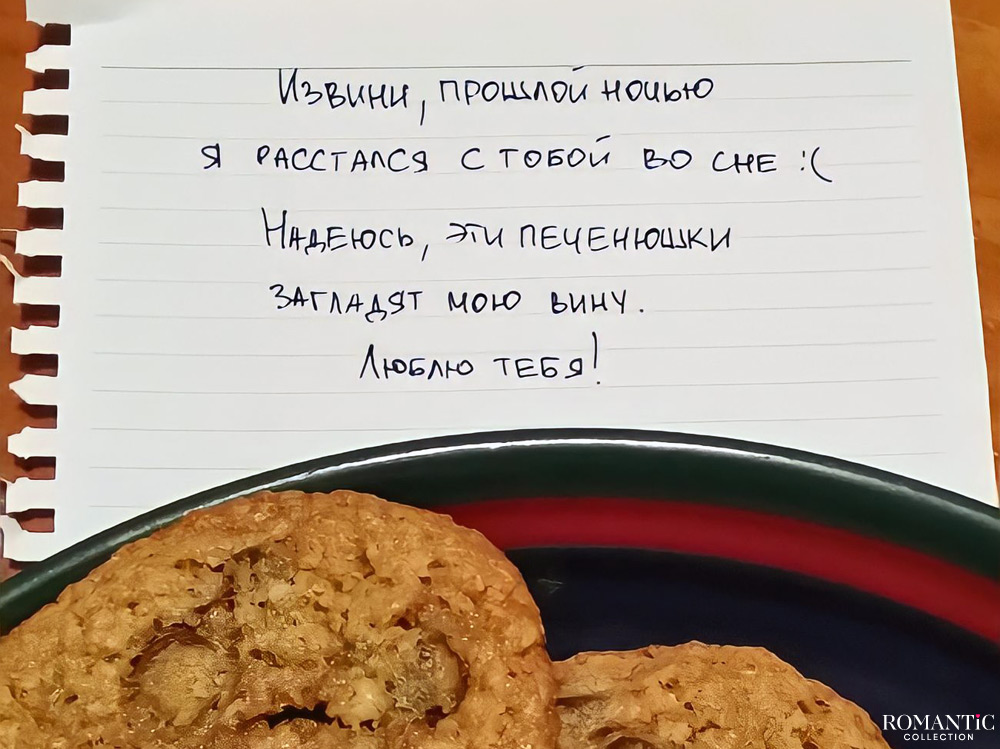 Извини, прошлой ночью
я расстался с тобой во сне :(
Надеюсь, эти печенюшки
загладят мою вину.
Люблю тебя!
ROMANTIC
COLLECTION